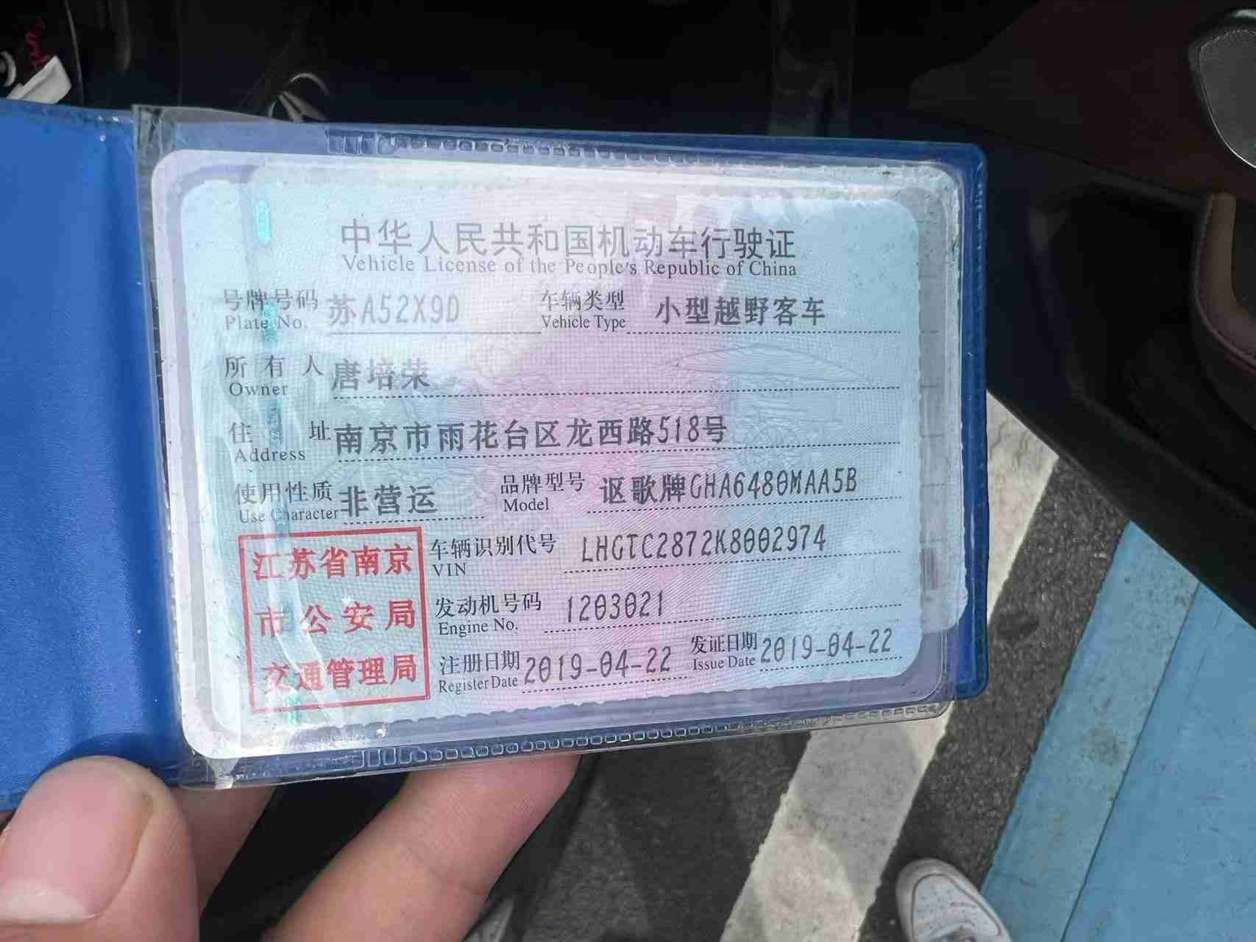 中华人民共和国机动车行驶证
Vehicle License of the People's Republic of China
号牌号码 苏A52X9D 车辆类型 小型越野客车
Plate No. Vehicle Type
所有人 唐培荣
Owner
住址 南京市雨花台区龙西路518号
Address
使用性质 非营运 品牌型号 讴歌牌GHA6480MAA5B
Use Character Model
江苏省南京
市公安局
交通管理局
车辆识别代号 LHGTC2872K8002974
VIN
发动机号码 1203021
Engine No.
注册日期 2019-04-22 发证日期 2019-04-22
Register Date Issue Date